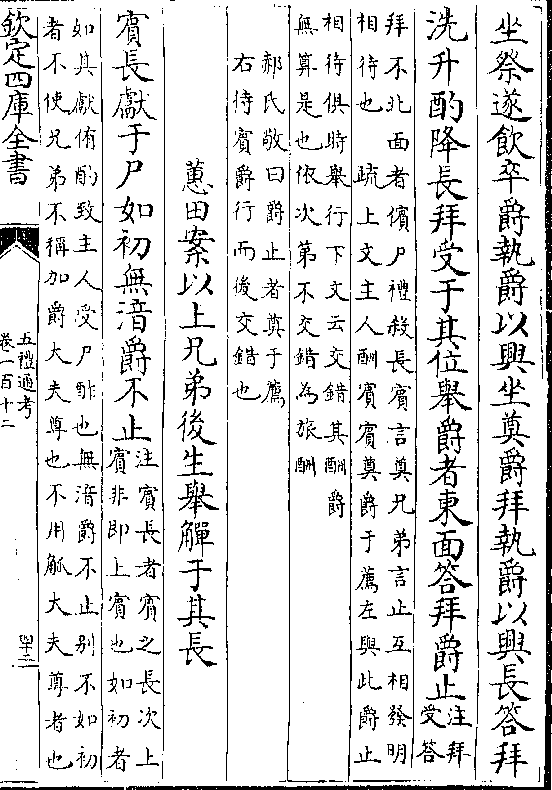 坐祭遂飲卒爵執爵以興坐奠爵拜執爵以興長答拜
洗升酌降長拜受于其位舉爵者東面答拜爵止
注拜
受答
拜不北面者儐尸禮殺長賓言奠兄弟言止互相發明
相待也 疏上文主人酬賓賓奠爵于薦左與此爵止
相待俱時舉行下文云交錯其酬爵
無算是也依次第不交錯為旅酬
郝氏敬曰爵止者奠于薦
右待賓爵行而後交錯也
蕙田案以上兄弟後生舉觶于其長
賓長獻于尸如初無湆爵不止
注賓長者賓之長次上
賓非即上賓也如初者
如其獻侑酌致主人受尸酢也無湆爵不止別不如初
者不使兄弟不稱加爵大夫尊也不用觚大夫尊者也
欽定四庫全書
五禮通考
卷一百十二